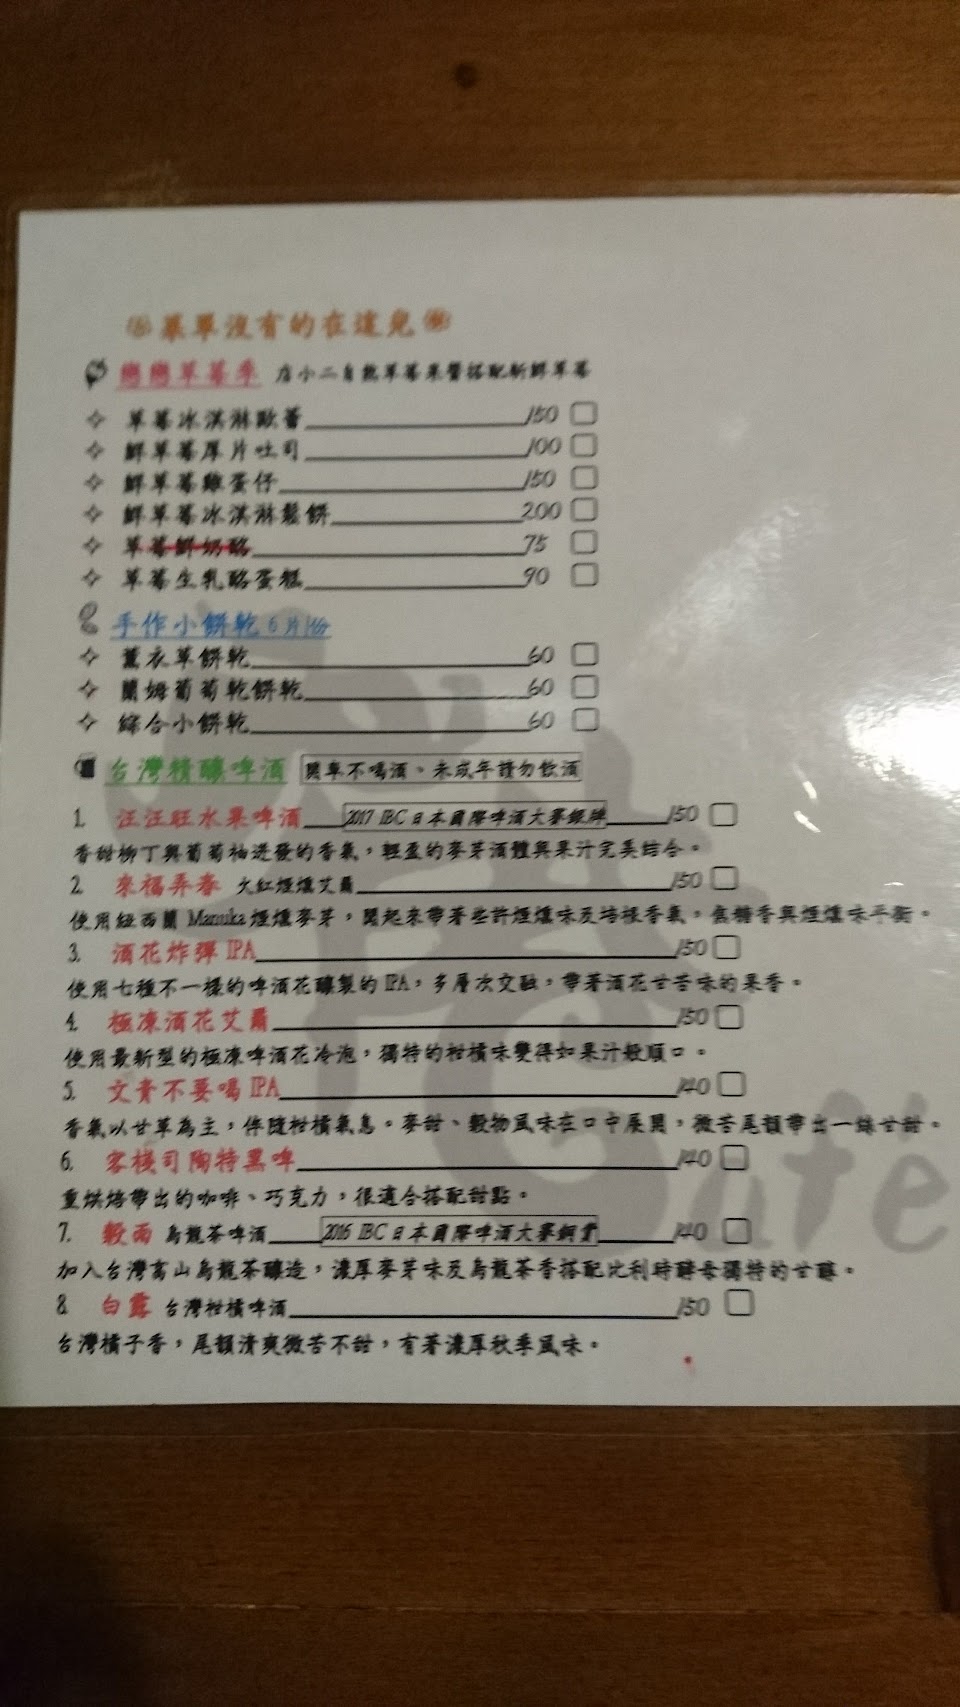 菜單沒有的在這兒
戀戀草莓季 店小二自熬草莓果醬搭配新鮮草莓
草莓冰淇淋歐蕾 150
鮮草莓厚片吐司 100
鮮草莓雞蛋仔 150
鮮草莓冰淇淋鬆餅 200
草莓鮮奶酪 75
草莓生乳酪蛋糕 90
手作小餅乾 6片/份
薰衣草餅乾 60
蘭姆葡萄乾餅乾 60
綜合小餅乾 60
台灣精釀啤酒 開車不喝酒、未成年請勿飲酒
1. 汪汪旺水果啤酒 2017 IBC日本國際啤酒大賽銀牌 150
香甜柳丁與葡萄柚迸發的香氣，輕盈的麥芽酒體與果汁完美結合。
2. 來福弄春 火紅煙燻艾爾 150
使用紐西蘭 Manuka 煙燻麥芽，聞起來帶著些許煙燻味及培根香氣，焦糖香與煙燻味平衡。
3. 酒花炸彈 IPA 150
使用七種不一樣的啤酒花釀製的 IPA，多層次交融，帶著酒花甘苦味的果香。
4. 極凍酒花艾爾 150
使用最新型的極凍啤酒花冷泡，獨特的柑橘味變得如果汁般順口。
5. 文青不要喝 IPA 140
香氣以甘草為主，伴隨柑橘氣息。麥甜、穀物風味在口中展開，微苦尾韻帶出一絲甘甜。
6. 客棧司陶特黑啤 140
重烘焙帶出的咖啡、巧克力，很適合搭配甜點。
7. 穀雨 烏龍茶啤酒 2016 IBC日本國際啤酒大賽銅賞 140
加入台灣高山烏龍茶釀造，濃厚麥芽味及烏龍茶香搭配比利時酵母獨特的甘醇。
8. 白露 台灣柑橘啤酒 150
台灣橘子香，尾韻清爽微苦不甜，有著濃厚秋季風味。
Café